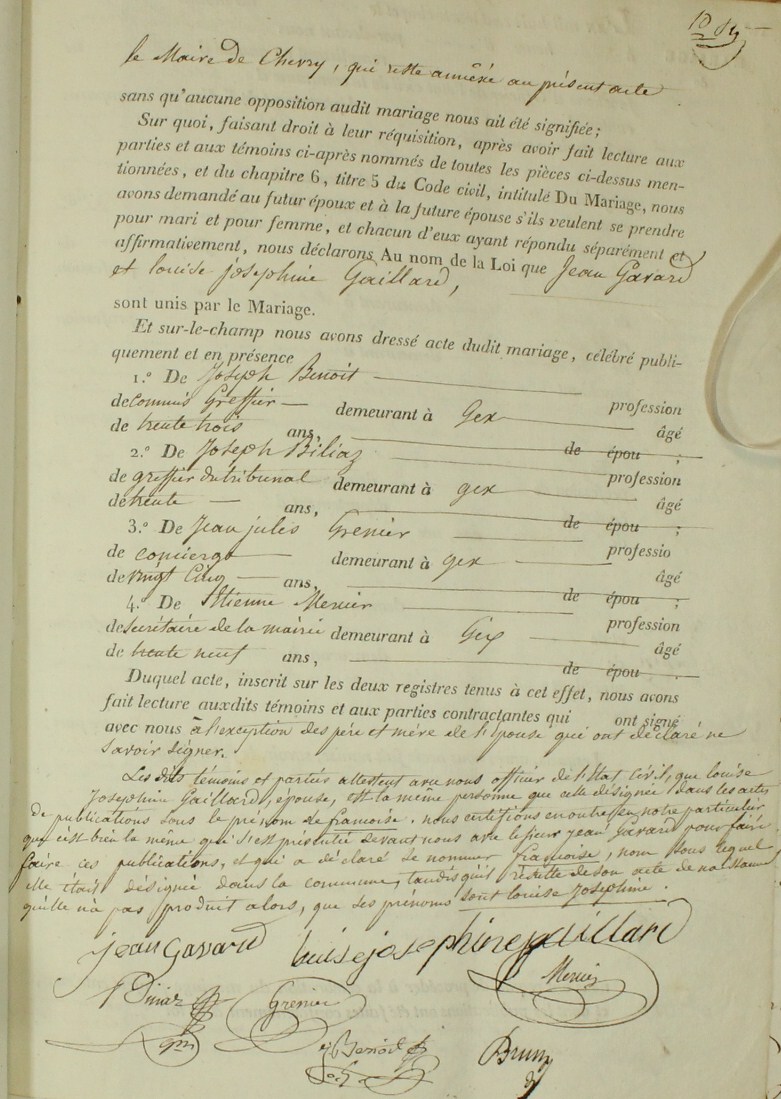 le Maire de Chevry, qui reste annéxé au présent acte
sans qu'aucune opposition audit mariage nous ait été signifiée;
Sur quoi, faisant droit à leur réquisition, après avoir fait lecture aux
parties et aux témoins ci-après nommés de toutes les pièces ci-dessus men-
tionnées, et du chapitre 6, titre 5 du Code civil, intitulé Du Mariage, nous
avons demandé au futur époux et à la future épouse s'ils veulent se prendre
pour mari et pour femme, et chacun d'eux ayant répondu séparément et
affirmativement, nous déclarons Au nom de la Loi que Jean Gavard
et louise josephine Gaillard,
sont unis par le Mariage.
Et sur-le-champ nous avons dressé acte dudit mariage, célébré publi-
quement et en présence
1.º De Joseph Benoit profession
de commis Greffier demeurant à Gex âgé
de trente trois ans, de épou ;
2.º De Joseph profession
de greffier du tribunal demeurant à gex âgé
de trente ans, de épou ;
3.º De Jean jules Grenier professio
de concierge demeurant à gex âgé
de vingt Cinq ans, de épou ;
4.º De Etienne Mercier profession
de secrétaire de la mairie demeurant à Gex âgé
de trente neuf ans, de épou .
Duquel acte, inscrit sur les deux registres tenus à cet effet, nous avons
fait lecture auxdits témoins et aux parties contractantes qui ont signé
avec nous à l'exception des père et mère de l'Epouse qui ont déclaré ne
savoir signer.
Les dits témoins et parties attestent avec nous officier de l'Etat Civil, que louise
Josephine Gaillard, épouse, est la même personne que celle désignée dans les actes
de publications sous le prénom de francoise. nous certifions en outre en notre particulier
que c'est bien la même qui s'est présentée devant nous avec le sieur jean Gavard pour faire
faire ces publications, et qui a déclaré se nommer francoise, nom sous lequel
elle était désignée dans la commune, tandis qu'il résulte de son acte de naissance
qu'elle n'a pas produit alors, que ses prénoms sont louise Josephine.
jean Gavard louise josephine gaillard
Mercier
Grenier
Benoit
Brun